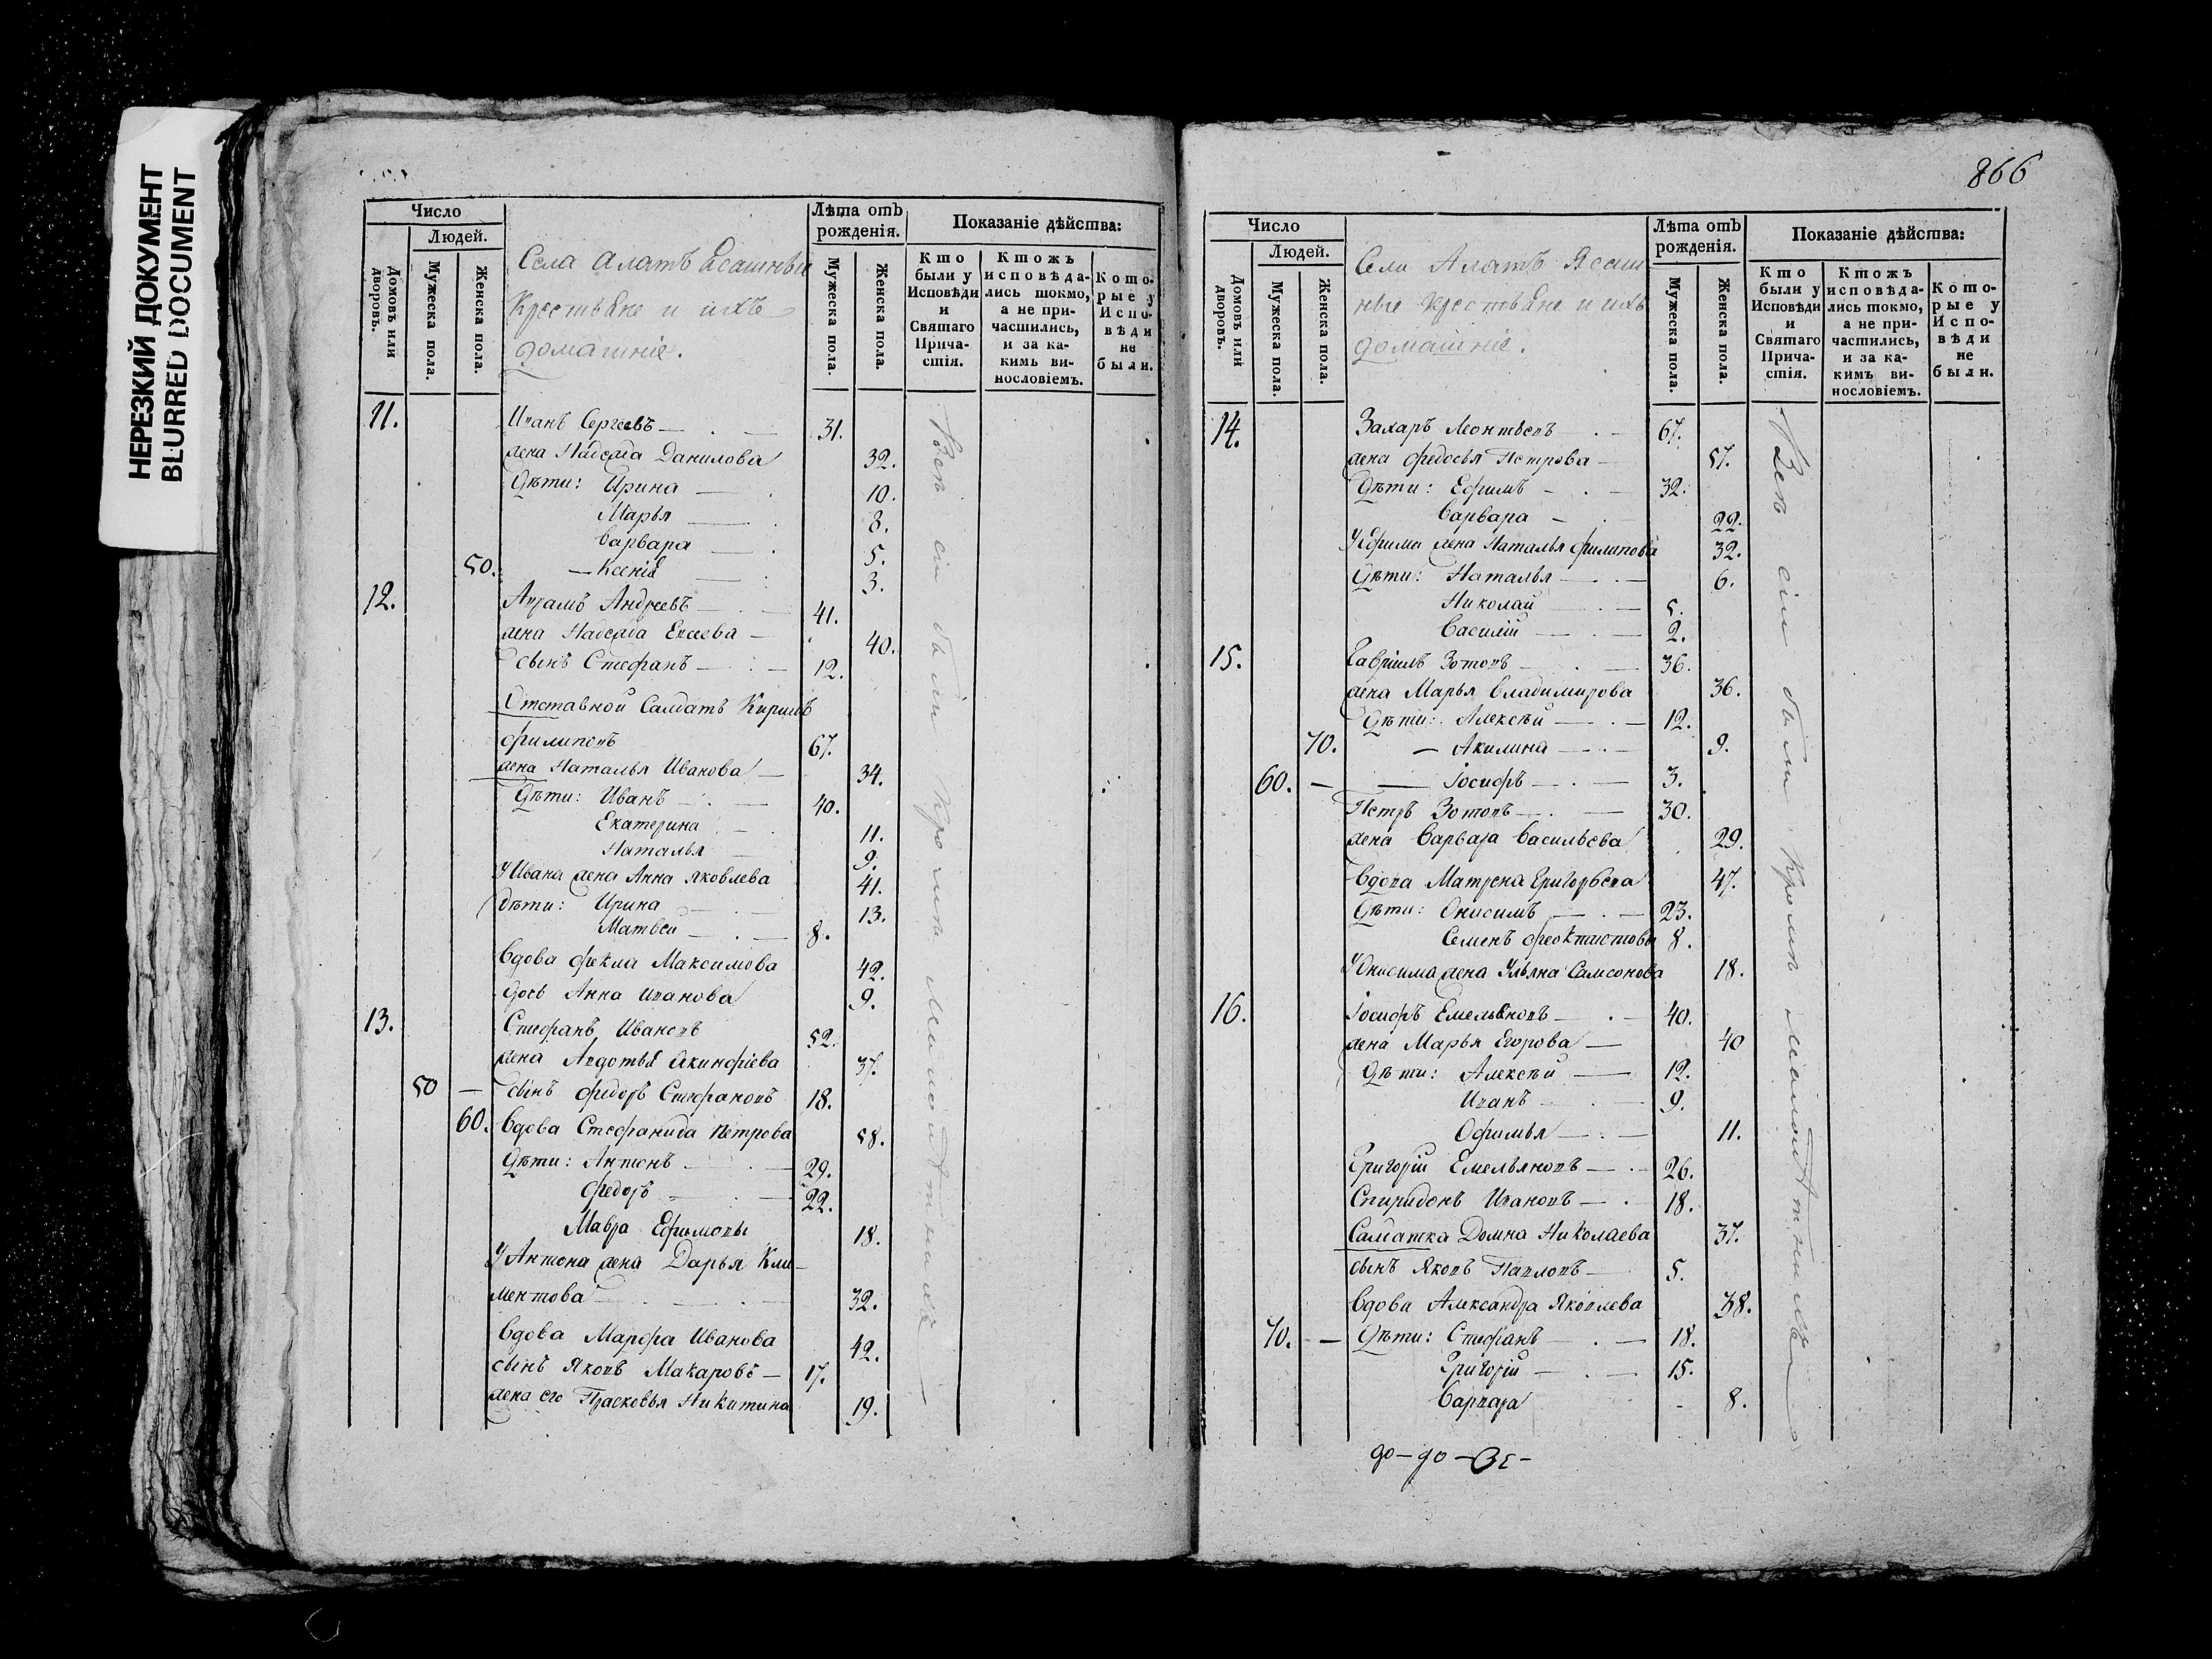 НЕРЕЗКИЙ ДОКУМЕНТ
BLURRED DOCUMENT
Число
Людей.
Домовъ или дворовъ.
Мужеска пола.
Женска пола.
Села Алатъ Ясашные
Крестьяне и ихъ
домашніе.
Лѣта отъ рожденія.
Мужеска пола.
Женска пола.
Показаніе дѣйства:
Кто были у Исповѣди и Святаго Причастія.
Ктожъ исповѣдались токмо, а не причастились, и за какимъ винословіемъ.
Которые у Исповѣди не были.
11. Иванъ Сергеевъ 31.
жена Надежда Данилова 32.
Дѣти: Ирина 10.
Марья 8.
Варвара 5.
50. Ксенія 3.
12. Аврамъ Андреевъ 41.
жена Надежда Евсеева 40.
сынъ Стефанъ 12.
Отставной Салдатъ Кирилъ
Филиповъ 67.
жена Наталья Иванова 34.
Дѣти: Иванъ 40.
Екатерина 11.
Наталья 9.
У Ивана жена Анна Яковлева 41.
дѣти: Ирина 13.
Матвей 8.
Вдова Фекла Максимова 42.
дочь Анна Иванова 9.
13. Стефанъ Ивановъ 52.
жена Авдотья Акинфіева 37.
50 — сынъ Федоръ Стефановъ 18.
60. Вдова Стефанида Петрова 58.
Дѣти: Антонъ 29.
Федоръ 22.
Мавра Ефимовы 18.
У Антона жена Дарья Кли-
ментова 32.
Вдова Марфа Иванова 42.
сынъ Яковъ Макаровъ 17.
жена его Прасковья Никитина 19.
Всѣ сіи были кромѣ малолѣтныхъ
866
Число
Людей.
Домовъ или дворовъ.
Мужеска пола.
Женска пола.
Села Алатъ Ясаш-
ные Крестьяне и ихъ
домашніе.
Лѣта отъ рожденія.
Мужеска пола.
Женска пола.
Показаніе дѣйства:
Кто были у Исповѣди и Святаго Причастія.
Ктожъ исповѣдались токмо, а не причастились, и за какимъ винословіемъ.
Которые у Исповѣди не были.
14. Захаръ Леонтьевъ 67.
жена Федосья Петрова 57.
Дѣти: Ефимъ 32.
Варвара 22.
У Ефима жена Наталья Филипова 32.
Дѣти: Наталья 6.
Николай 5.
Василій 2.
15. Гавріилъ Зотовъ 36.
жена Марья Владимирова 36.
Дѣти: Алексѣй 12.
70. — Акилина 9.
60. — Іосифъ 3.
Петръ Зотовъ 30.
жена Варвара Васильева 29.
Вдова Матрена Григорьева 47.
Дѣти: Онисимъ 23.
Семенъ Феоктистовы 8.
У Онисима жена Ульяна Самсонова 18.
16. Іосифъ Емельяновъ 40.
жена Марья Егорова 40
Дѣти: Алексѣй 12.
Иванъ 9.
Офимья 11.
Григорій Емельяновъ 26.
Спиридонъ Ивановъ 18.
Салдатка Домна Николаева 37.
сынъ Яковъ Павловъ 5.
Вдова Александра Яковлева 38.
70. — Дѣти: Стефанъ 18.
Григорій 15.
Варвара 8.
Всѣ сіи были кромѣ малолѣтныхъ